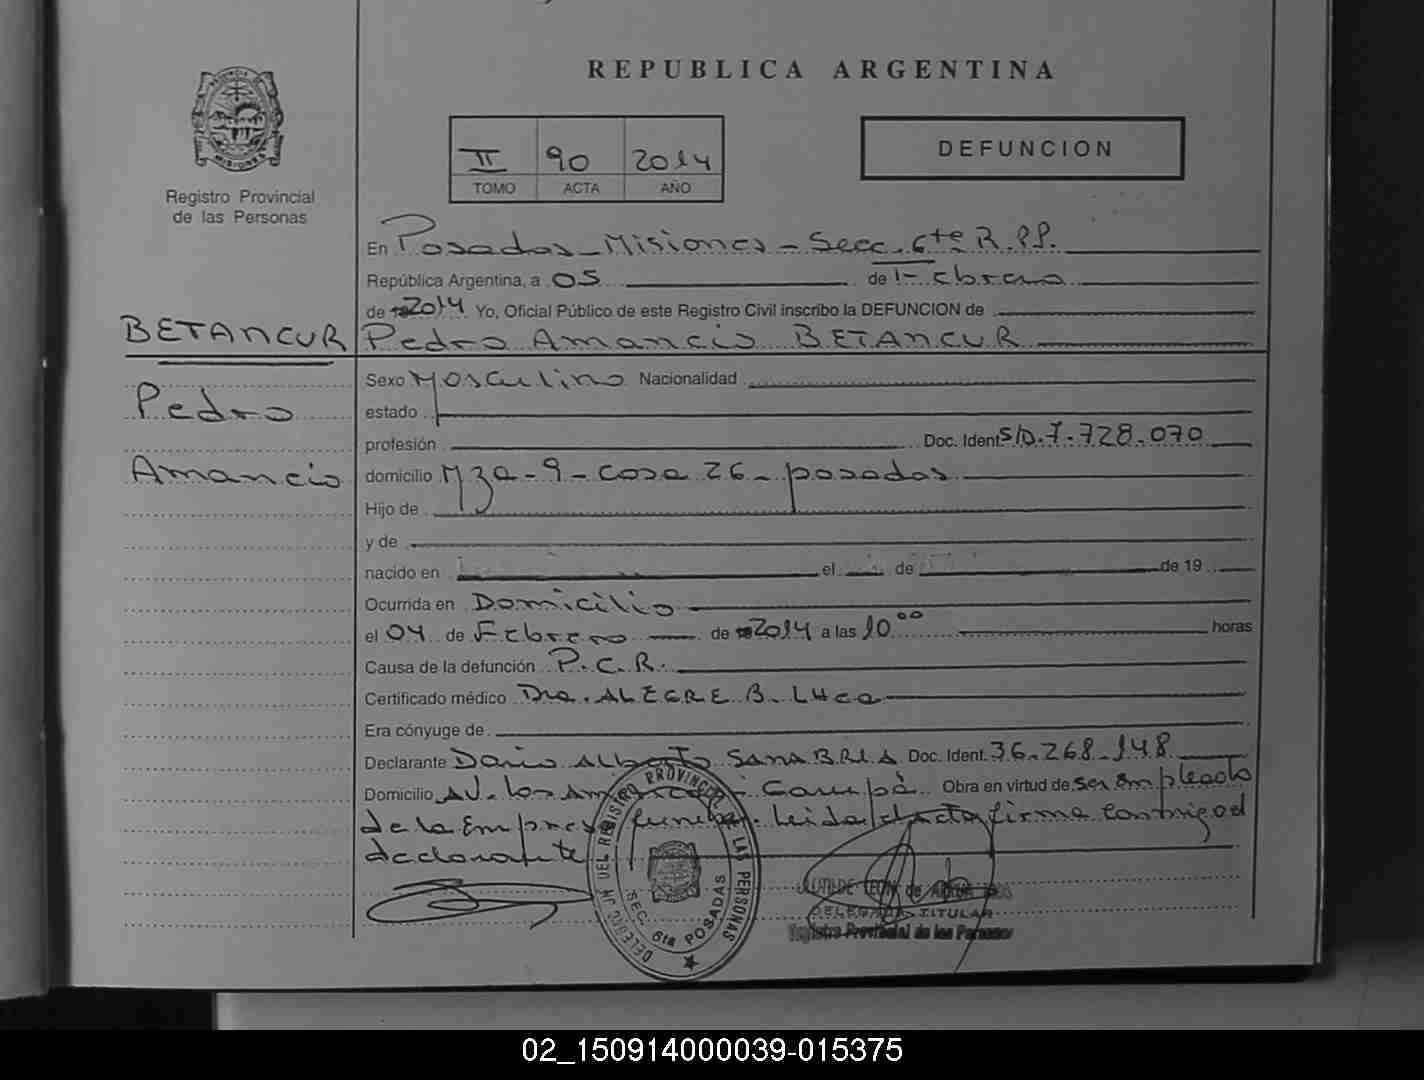 REPUBLICA ARGENTINA
PROVINCIA DE MISIONES
Registro Provincial
de las Personas
II 90 2014
TOMO ACTA AÑO
DEFUNCION
En Posadas - Misiones - Secc. 6te R.P.P.
República Argentina, a 05 de Febrero
de 2014 Yo, Oficial Público de este Registro Civil inscribo la DEFUNCION de
BETANCUR Pedro Amancio BETANCUR
Pedro
Amancio
Sexo Masculino Nacionalidad
estado
profesión Doc. Ident. S/D. 7-728-070
domicilio Mza - 9 - casa 26 - posadas
Hijo de
y de
nacido en el de de 19
Ocurrida en Domicilio
el 04 de Febrero de 2014 a las 10 00 horas
Causa de la defunción P.C.R.
Certificado médico Dra. ALEGRE B.
Era cónyuge de
Declarante Dario Alberto SANABRIA Doc. Ident. 36-268-148
Domicilio Av. Los Obra en virtud de ser empleado
de la Empresa Leida el acta firma conmigo el
declarante
DEL REGISTRO PROVINCIAL DE LAS PERSONAS
SEC. 6ta POSADAS
LEON de
DELEGADA TITULAR
Registro Provincial de las Personas
02_150914000039-015375